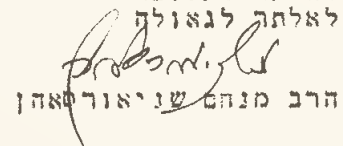 לאלתר לגאולה
הרב מנחם שניאורסאהן